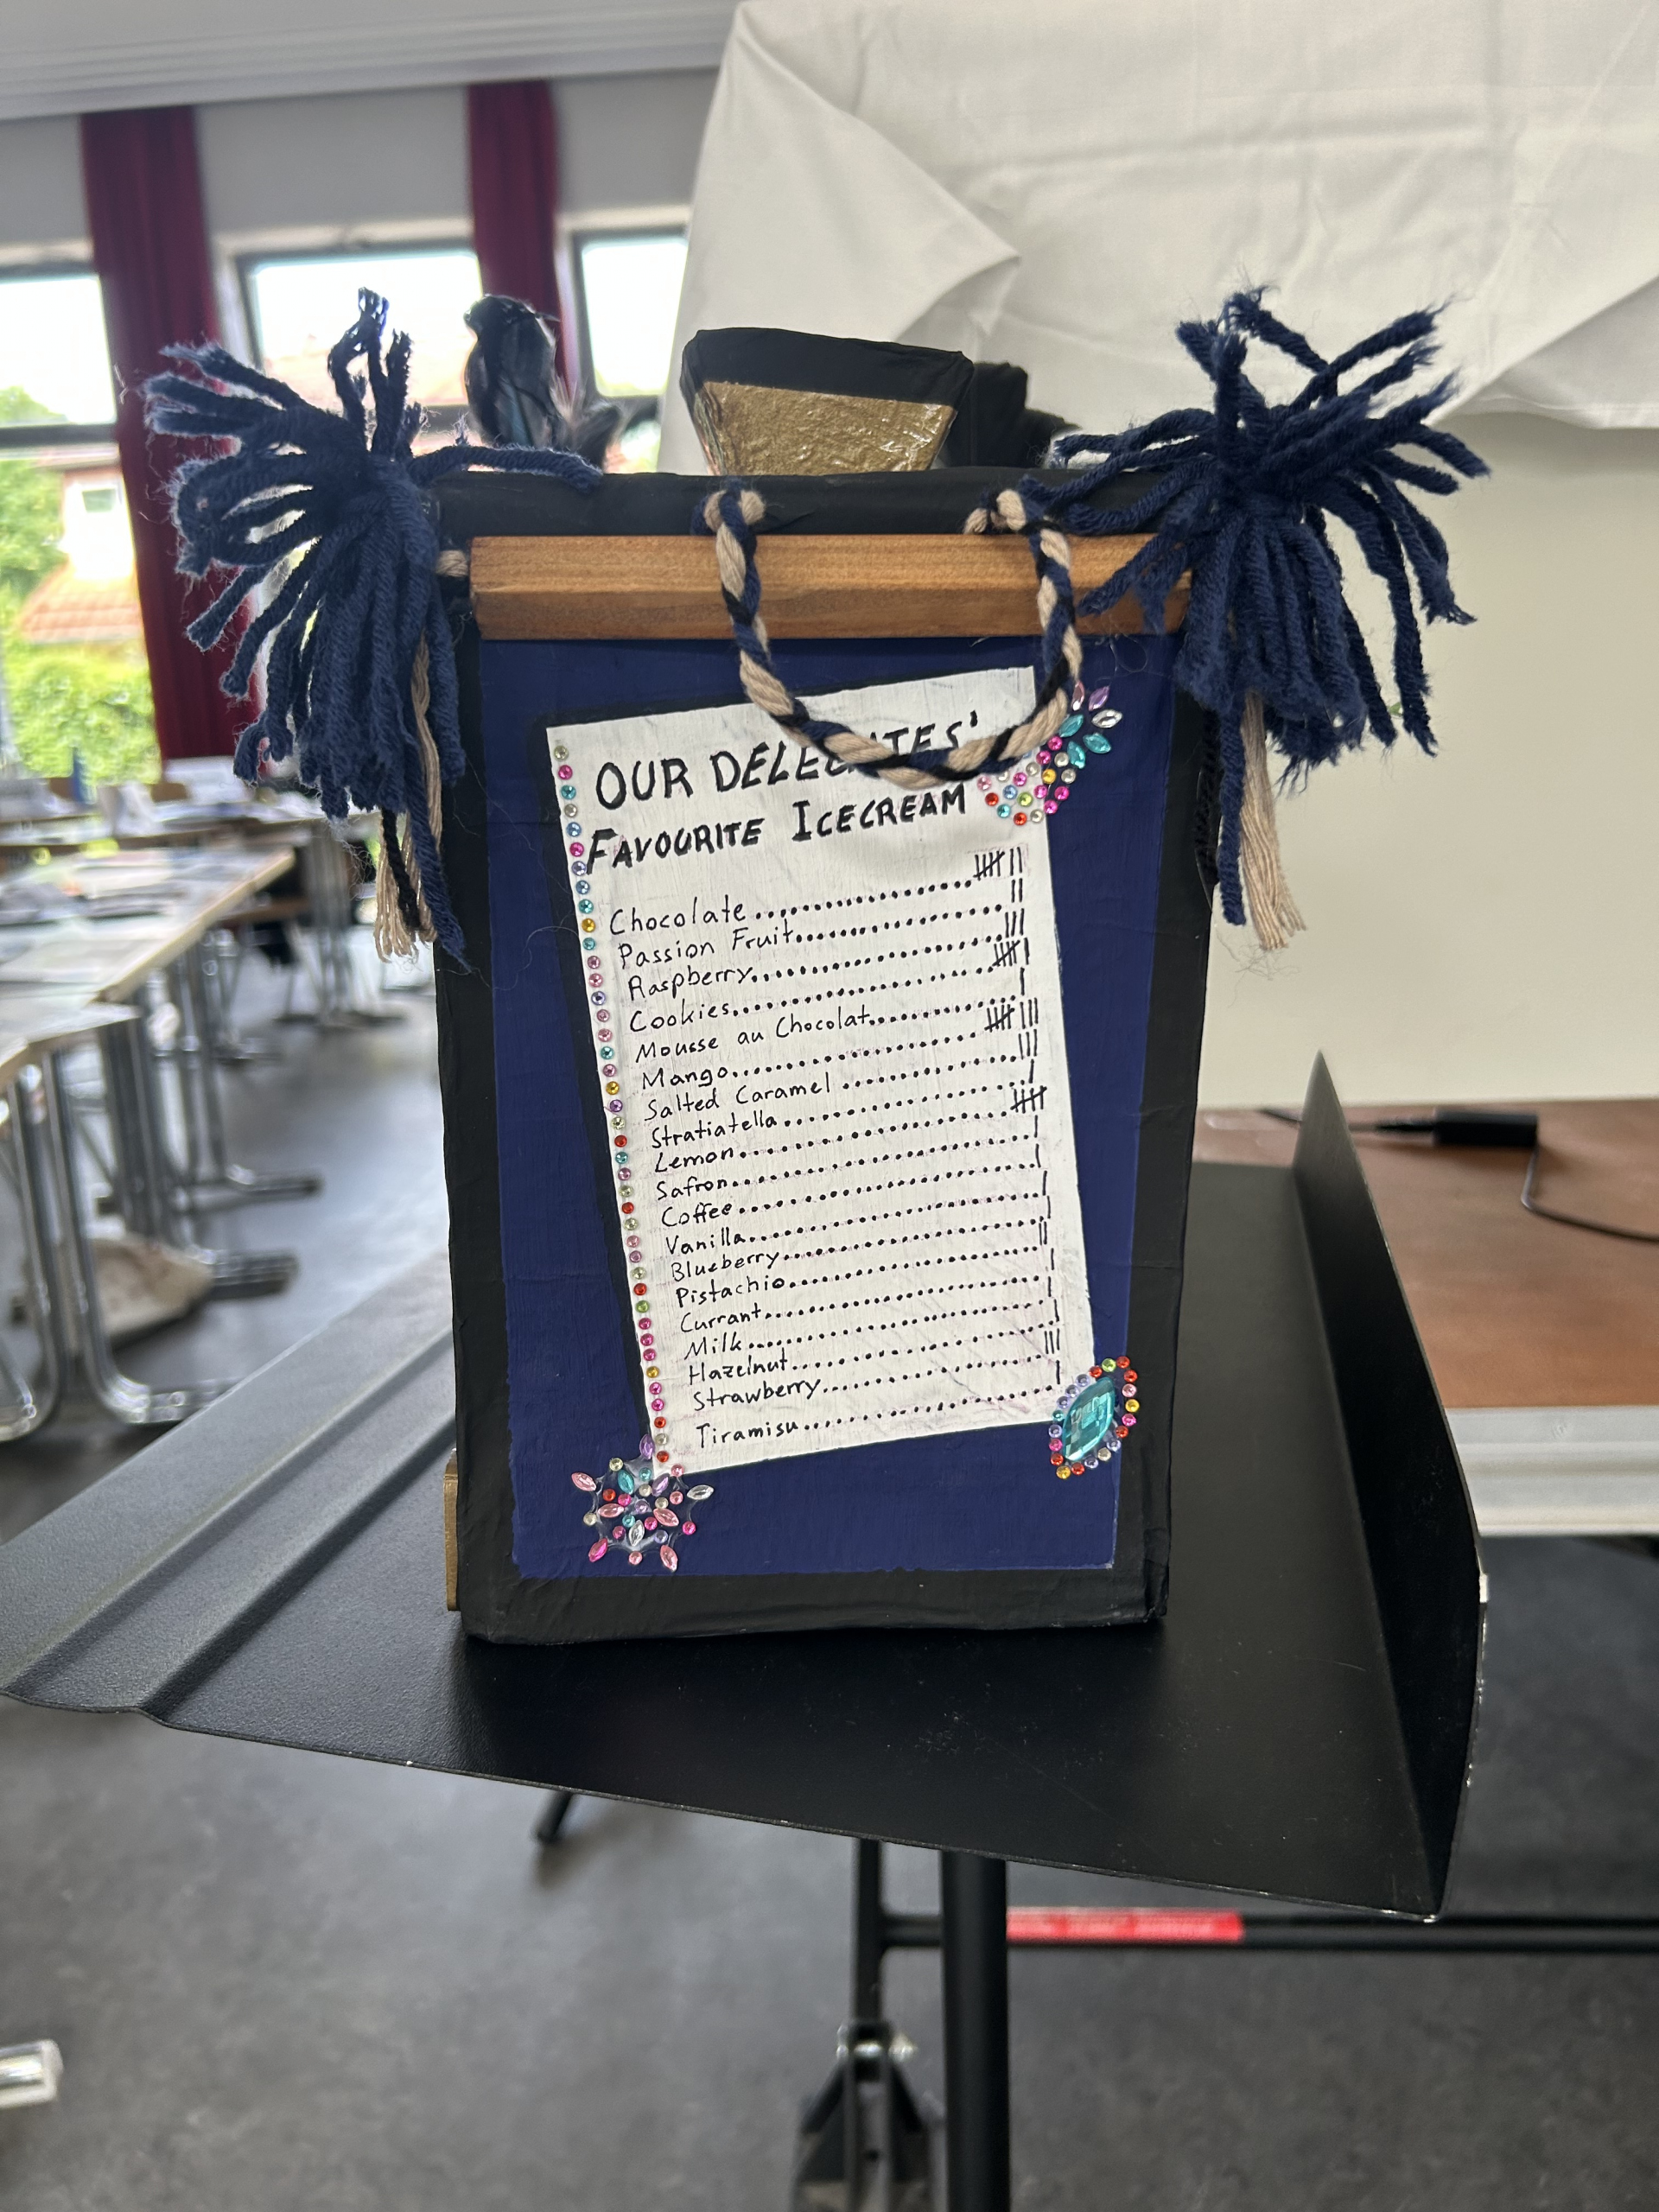 OUR DELEGATES'
FAVOURITE ICECREAM
Chocolate.................... 𝍸 ||
Passion Fruit.................... ||
Raspberry.................... |||
Cookies.................... 𝍸 |
Mousse au Chocolat.................... |
Mango.................... 𝍸 |||
Salted Caramel.................... |||
Stratiatella.................... |
Lemon.................... 𝍸
Safron.................... |
Coffee.................... |
Vanilla.................... |
Blueberry.................... |
Pistachio.................... ||
Currant.................... |
Milk.................... |
Hazelnut.................... |
Strawberry.................... |||
Tiramisu.................... |